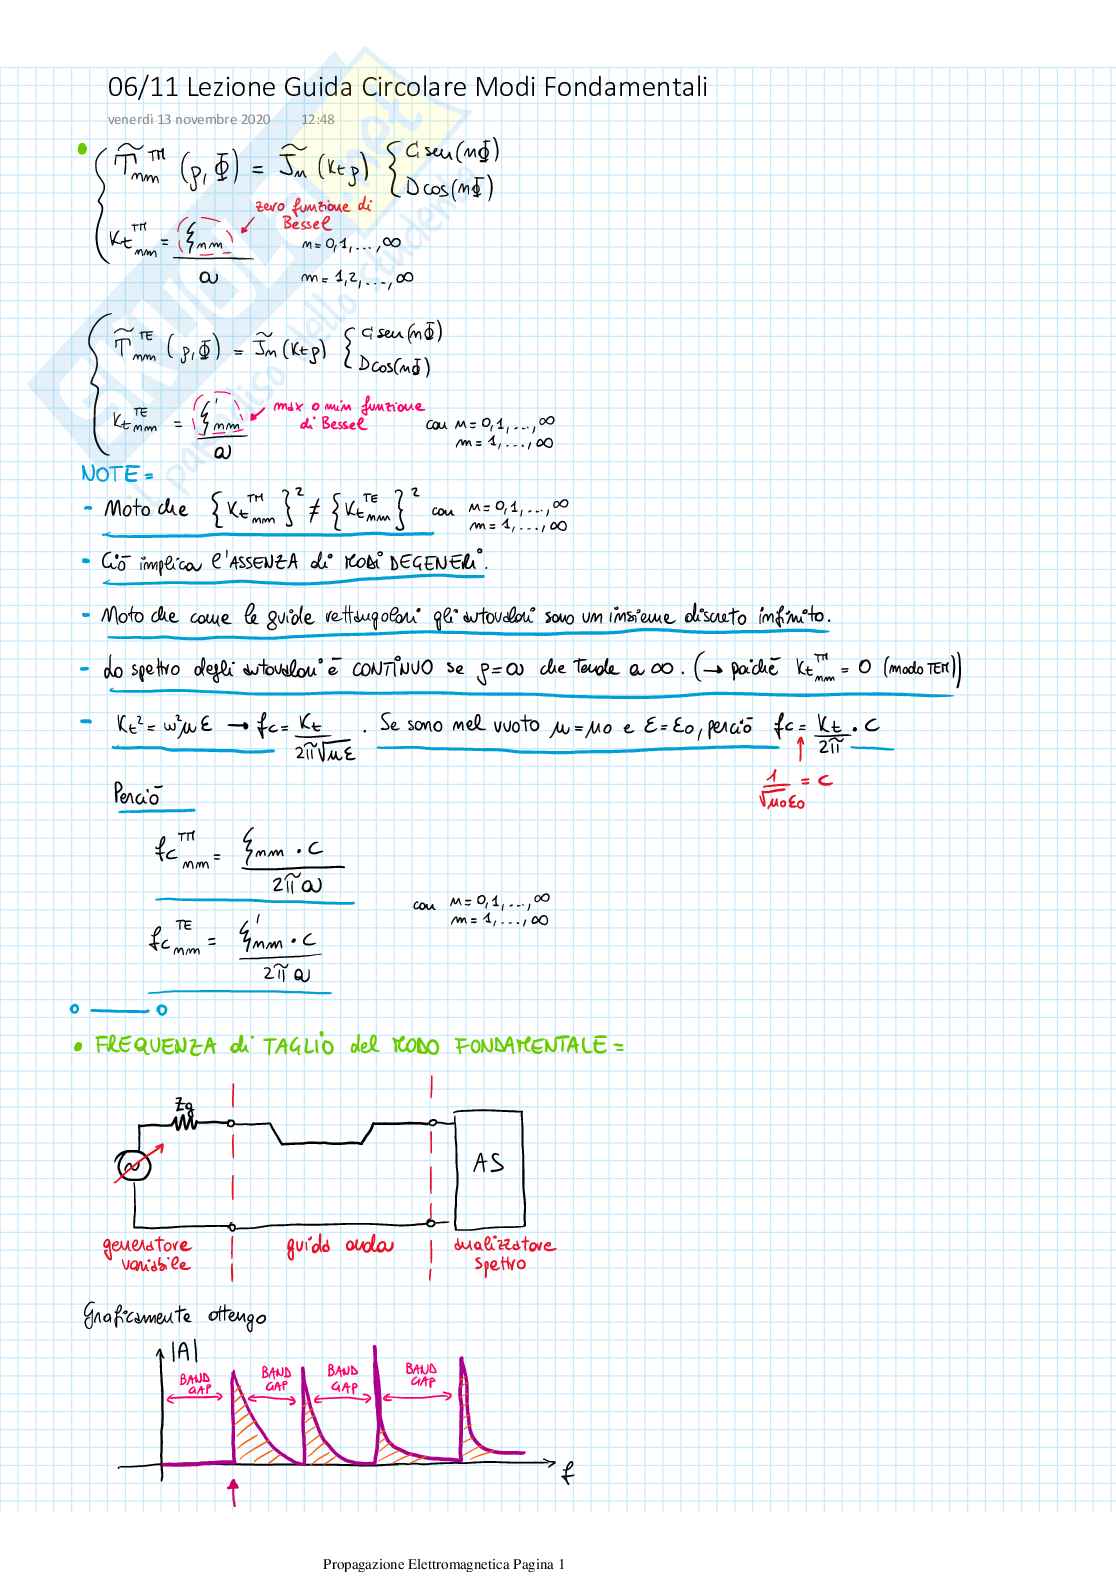 06/11 Lezione Guida Circolare Modi Fondamentali
venerdì 13 novembre 2020 12:48
T̃ₙₘᵀᴹ (ρ, Φ) = J̃ₙ (Kt ρ) { C sen(nΦ)
D cos(nΦ)
zero funzione di
Bessel
Ktₙₘᵀᴹ = ξₙₘ / a
n = 0, 1, ..., ∞
m = 1, 2, ..., ∞
T̃ₙₘᵀᴱ (ρ, Φ) = J̃ₙ (Kt ρ) { C sen(nΦ)
D cos(nΦ)
Ktₙₘᵀᴱ = ξ'ₙₘ / a
max o min funzione
di Bessel
con n = 0, 1, ..., ∞
m = 1, ..., ∞
NOTE =
- Noto che {Ktₙₘᵀᴹ}² ≠ {Ktₙₘᵀᴱ}² con n = 0, 1, ..., ∞
m = 1, ..., ∞
- Ciò implica l'ASSENZA di MODI DEGENERI.
- Noto che come le guide rettangolari gli autovalori sono un insieme discreto infinito.
- Lo spettro degli autovalori è CONTINUO se ρ = a che tende a ∞. (→ poichè Ktₙₘᵀᴹ = 0 (modo TEM))
- Kt² = ω²με → fc = Kt / 2π√με . Se sono nel vuoto μ = μ0 e ε = ε0, perciò fc = Kt / 2π · c
1 / √μ0ε0 = c
Perciò
fcₙₘᵀᴹ = ξₙₘ · c / 2πa
con n = 0, 1, ..., ∞
m = 1, ..., ∞
fcₙₘᵀᴱ = ξ'ₙₘ · c / 2πa
• FREQUENZA di TAGLIO del MODO FONDAMENTALE =
Zg
AS
generatore
variabile
guida onda
analizzatore
spettro
Graficamente ottengo
|A|
BAND
GAP
BAND
GAP
BAND
GAP
BAND
GAP
f
Propagazione Elettromagnetica Pagina 1